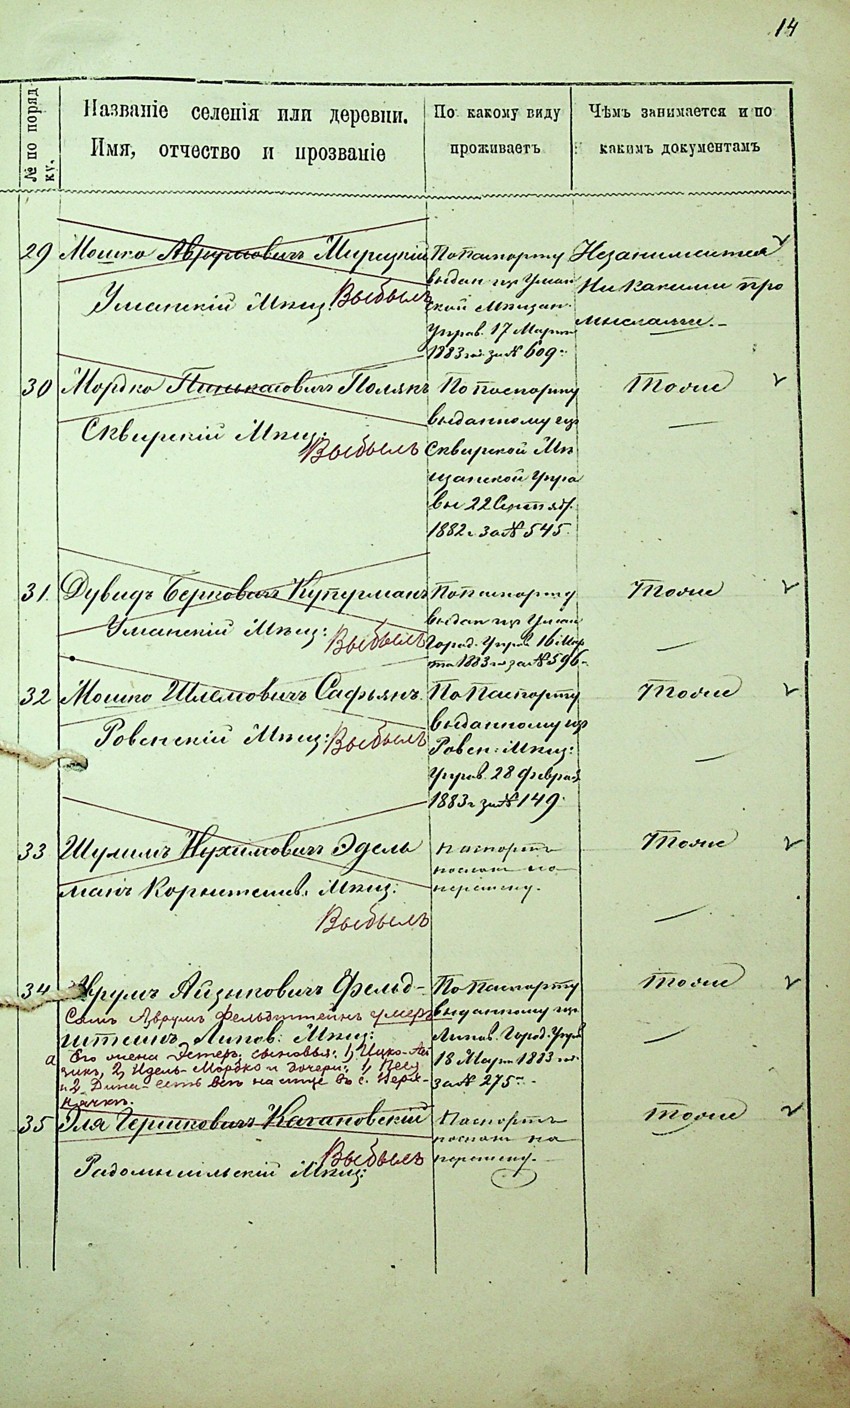 14
№ по поряд-
ку.
Названіе селенія или деревни.
Имя, отчество и прозваніе
По какому виду
проживаетъ
Чѣмъ занимается и по
какимъ документамъ
29
Мошко Аврумовичъ Мирецкій
Уманскій Мѣщ: Выбылъ
По паспорту
выдан изъ Уман
ской Мѣщан.
Управ. 17 Марта
1883 г. за № 609
Незанимается
Ни какими про
мыслами.
30
Мордко Пинькасовичъ Полякъ
Сквирскій Мѣщ:
Выбылъ
По паспорту
выданному изъ
Сквирской Мѣ
щанской Упра
вы 22 Сентяб.
1882 г. за № 545
Тоже
31.
Дувидъ Берковичъ Куперманъ
Уманскій Мѣщ: Выбылъ
По паспорту
выдан изъ Уман
Город. Управ 16 Мар
та 1883 г. за № 596
Тоже
32
Мошко Шлемовичъ Сафьянъ.
Ровенскій Мѣщ: Выбылъ
По Паспорту
выданному изъ
Ровен: Мѣщ:
Управ. 28 Феврал
1883 г за № 149.
Тоже
33
Шулимъ Нухимовичъ Эдель
манъ Мѣщ:
Выбылъ
Паспортъ
посланъ на
перемену.
Тоже
34
Аврумъ Айзыковичъ Фельд-
Самъ Аврумъ Фельдштейнъ умеръ
штеинъ Липов. Мѣщ:
а Его жена Эстеръ, сыновья: 1, Ицко-Ай
зикъ, 2, Идель-Мордко и дочери: 1, Песя
и 2, Дина есть всѣ на лице въ с. Верх-
нячкѣ.
По Паспорту
выданному изъ
Липов. Город. Управ
18 Марта 1883 г.
за № 275
Тоже
35
Эля Гершковичъ Кагановскій
Выбылъ
Радомысльскій Мѣщ:
Паспортъ
посланъ на
перемену.
Тоже